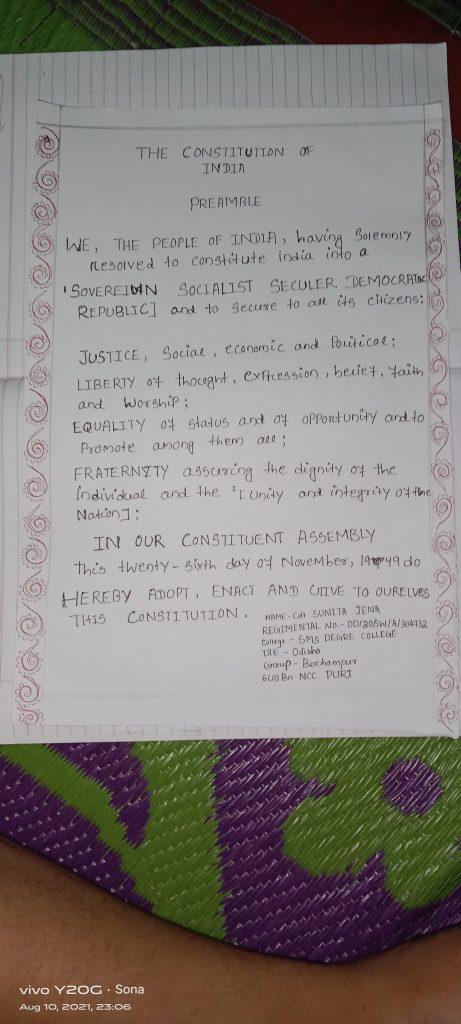 THE CONSTITUTION OF
INDIA
PREAMBLE
WE, THE PEOPLE OF INDIA, having Solemnly
resolved to constitute india into a
'SOVEREIGN SOCIALIST SECULER DEMOCRATIC
REPUBLIC] and to secure to all its citizens:
JUSTICE, Social, economic and Political;
LIBERTY of thought, expression, belief, faith
and Worship;
EQUALITY of status and of opportunity and to
Promote among them all;
FRATERNITY assuring the dignity of the
individual and the '[unity and integrity of the
Nation];
IN OUR CONSTITUENT ASSEMBLY
this twenty-sixth day of November, 1949 do
HEREBY ADOPT, ENACT AND GIVE TO OURELVES
THIS CONSTITUTION.
NAME - Cdt SUNITA JENA
REGIMENTAL No. - OD/20SW/A/304732
College - SMS DEGRE COLLEGE
DTE - Odisha
Group - Berhampur
6(O) Bn NCC PURI
vivo Y20G · Sona
Aug 10, 2021, 23:06